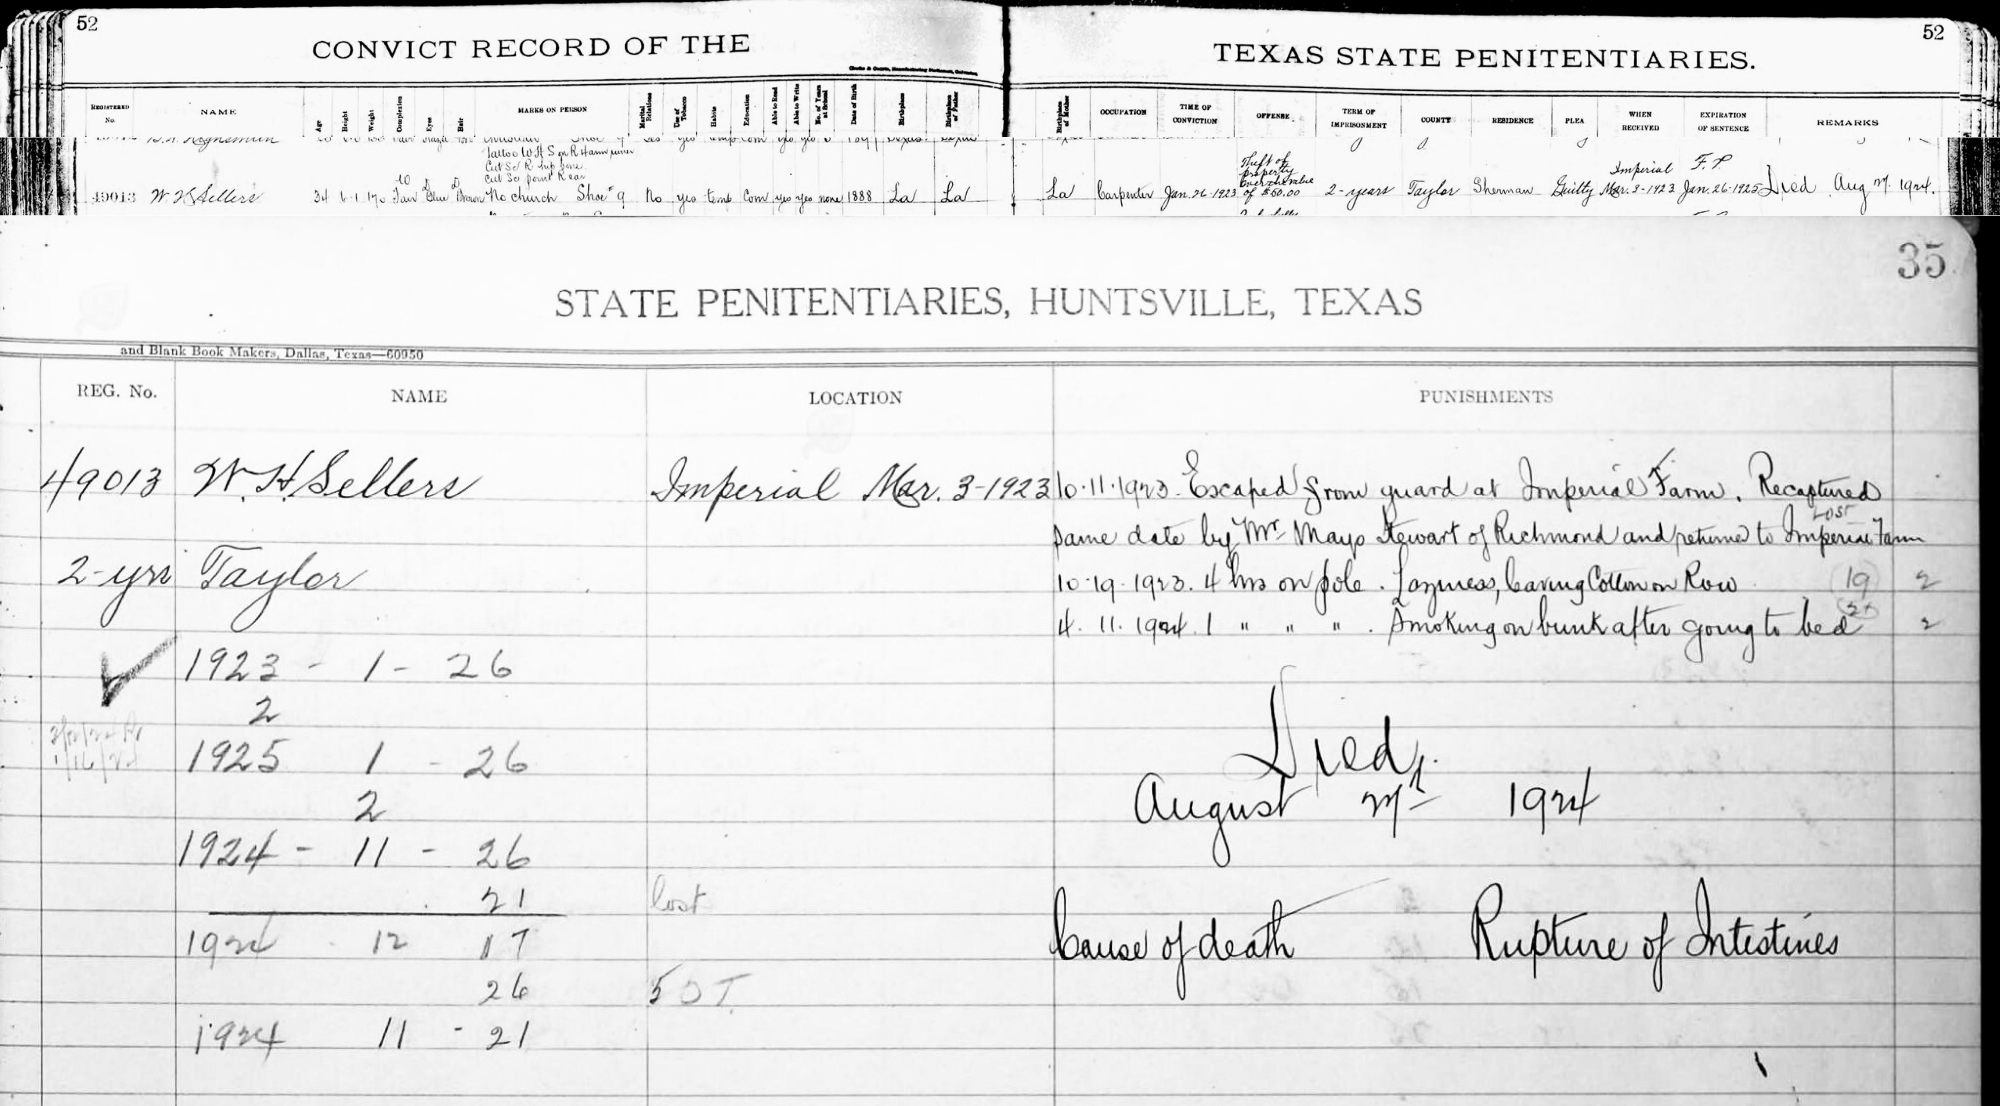 52
52
CONVICT RECORD OF THE TEXAS STATE PENITENTIARIES.
REGISTERED No. NAME Age Height Weight Complexion Eyes Hair MARKS ON PERSON Marital Relations Use of Tobacco Habits Education Able to Read Able to Write No. of Years at School Date of Birth Birthplace Birthplace of Father Birthplace of Mother OCCUPATION TIME OF CONVICTION OFFENSE TERM OF IMPRISONMENT COUNTY RESIDENCE PLEA WHEN RECEIVED EXPIRATION OF SENTENCE REMARKS
Tattoo W H S on R
Cut Sc R hip
Cut Sc point R ear
49013 W H Sellers 34 6-1 170 Fair Blue Brown No church Shoe 9 No yes temp Com yes yes none 1888 La La La Carpenter Jan. 26-1923 Theft of property over the value of $50.00 2-years Taylor Sherman Guilty Imperial Mar. 3-1923 Jan-26-1925 Died Aug 27. 1924.
35
STATE PENITENTIARIES, HUNTSVILLE, TEXAS
and Blank Book Makers, Dallas, Texas—60950
REG. No. NAME LOCATION PUNISHMENTS
49013 W. H. Sellers Imperial Mar. 3-1923 10-11-1923. Escaped from guard at Imperial Farm. Recaptured
same date by Mr. Mayo Stewart of Richmond and returned to Imperial Farm
Lost
2-yrs Taylor 10-19-1923. 4 hrs on pole. Lazyness, leaving Cotton on Row 19 2
4. 11. 1924. 1 " " " . Smoking on bunk after going to bed 2
1923 - 1 - 26
2
1925 1 - 26
2
Died.
August 27th 1924
1924 - 11 - 26
21 lost
1924 12 17
Cause of death Rupture of Intestines
26 5 O T.
1924 11 - 21